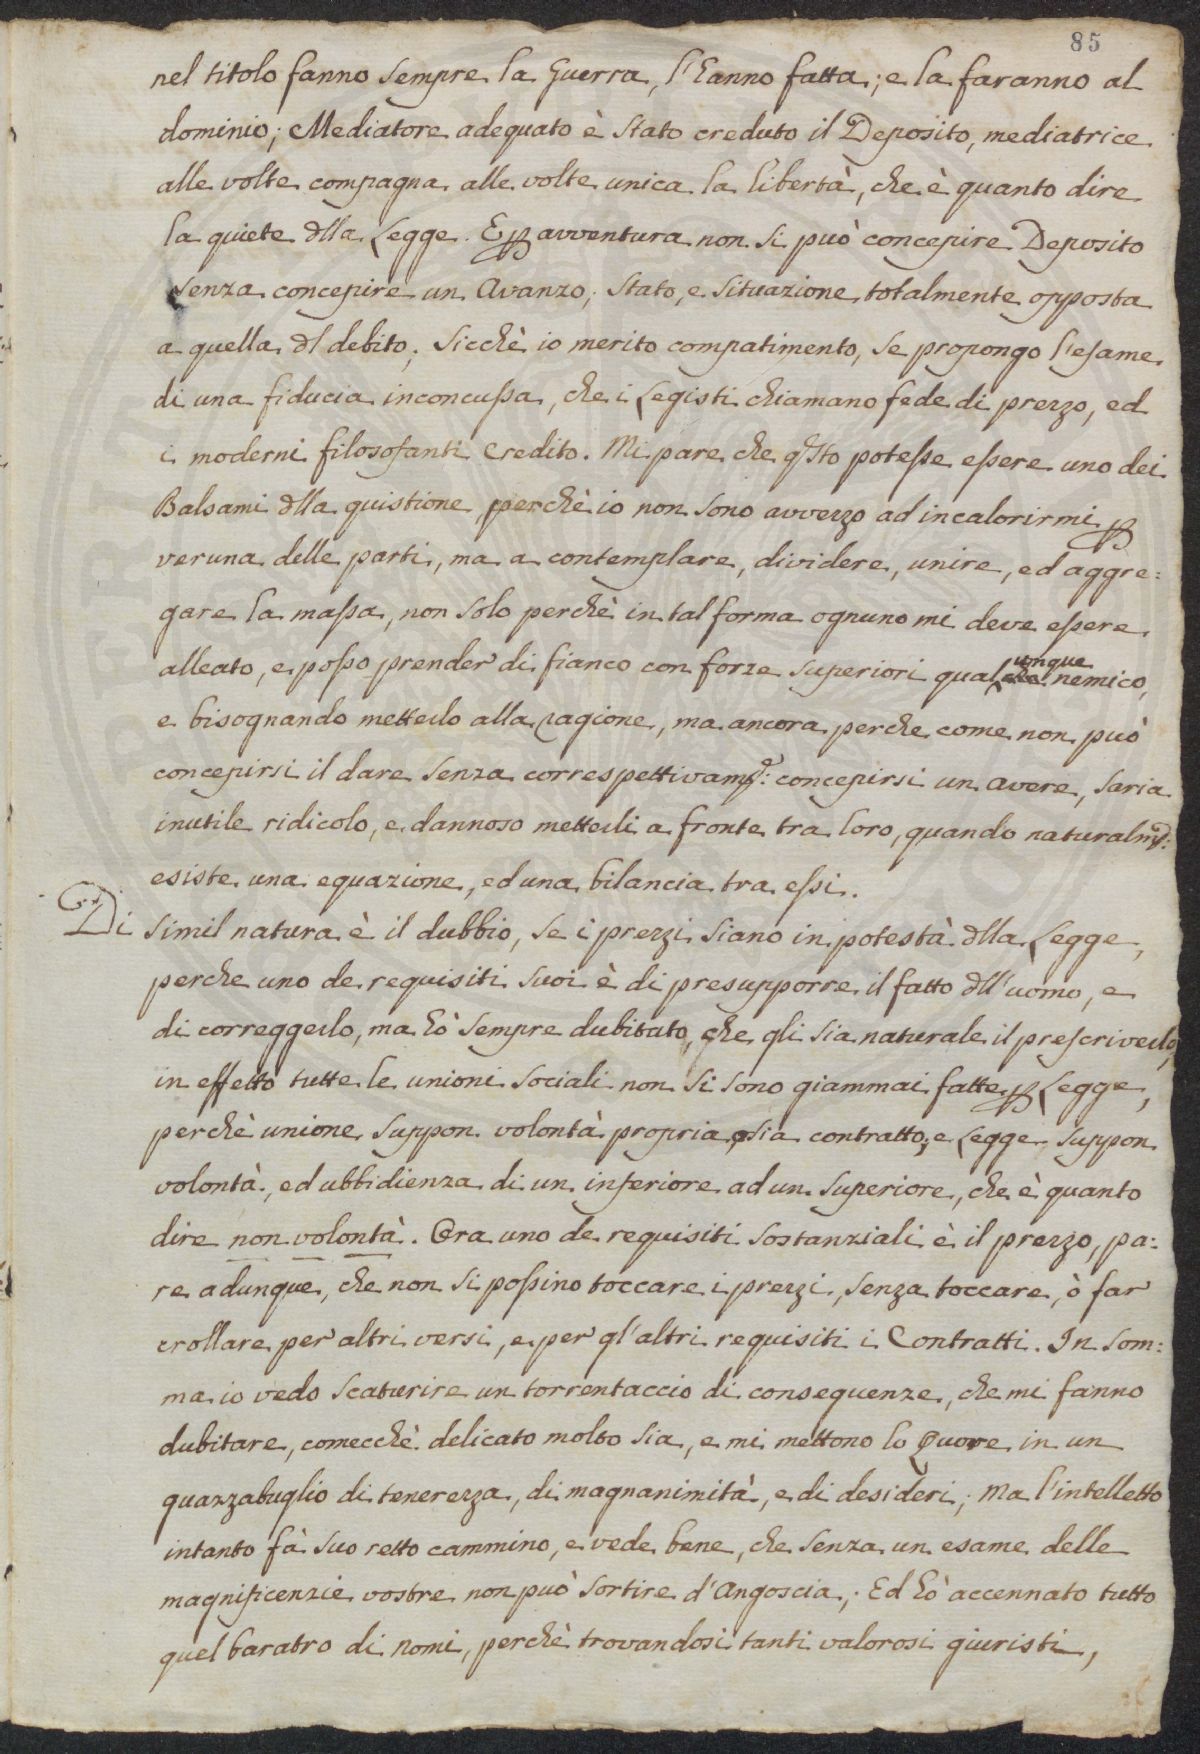 85
nel titolo fanno sempre la Guerra, l'hanno fatta; e la faranno al
dominio; Mediatore adequato è stato creduto il Deposito, mediatrice
alle volte compagna alle volte unica la libertà, che è quanto dire
la quiete dlla Legge. E ꝑ avventura non si può concepire Deposito
senza concepire un Avanzo; stato, e situazione totalmente opposta
a quella dl debito; sicchè io merito compatimento, se propongo l'esame
di una fiducia inconcussa, che i Legisti chiamano fede di prezzo, ed
i moderni filosofanti Credito. Mi pare che qsto potesse essere uno dei
Balsami dlla quistione, perchè io non sono avvezzo ad incalorirmi ꝑ
veruna delle parti, ma a contemplare, dividere, unire, ed aggre:
gare la massa, non solo perchè in tal forma ognuno mi deve essere
alleato, e posso prender di fianco con forze superiori qualunque nemico,
e bisognando metterlo alla ragione, ma ancora perche come non può
concepirsi il dare senza correspettivamte: concepirsi un avere, saria
inutile ridicolo, e dannoso metterli a fronte tra loro, quando naturalmte:
esiste una equazione, ed una bilancia tra essi.
Di simil natura è il dubbio, se i prezzi siano in potestà dlla Legge,
perche uno de requisiti suoi è di presupporre il fatto dll'uomo, e
di correggerlo, ma hò sempre dubitato, che gli sia naturale il prescriverlo,
in effetto tutte le unioni sociali non si sono giammai fatte ꝑ Legge,
perchè unione suppon volontà propria, osia contratto; e Legge suppon
volontà, ed ubbidienza di un inferiore ad un superiore, che è quanto
dire non volontà. Ora uno de requisiti sostanziali è il prezzo, pa:
re adunque, che non si possino toccare i prezzi, senza toccare, ò far
crollare per altri versi, e per gl'altri requisiti i Contratti. In som:
ma io vedo scaturire un torrentaccio di conseguenze, che mi fanno
dubitare, comecchè delicato molto sia, e mi mettono lo Quore in un
guazzabuglio di tenerezza, di magnanimità, e di desideri; ma l'intelletto
intanto fà suo retto cammino, e vede bene, che senza un esame delle
magnificenzie vostre non può sortire d'Angoscia; Ed hò accennato tutto
quel baratro di nomi, perchè trovandosi tanti valorosi giuristi,